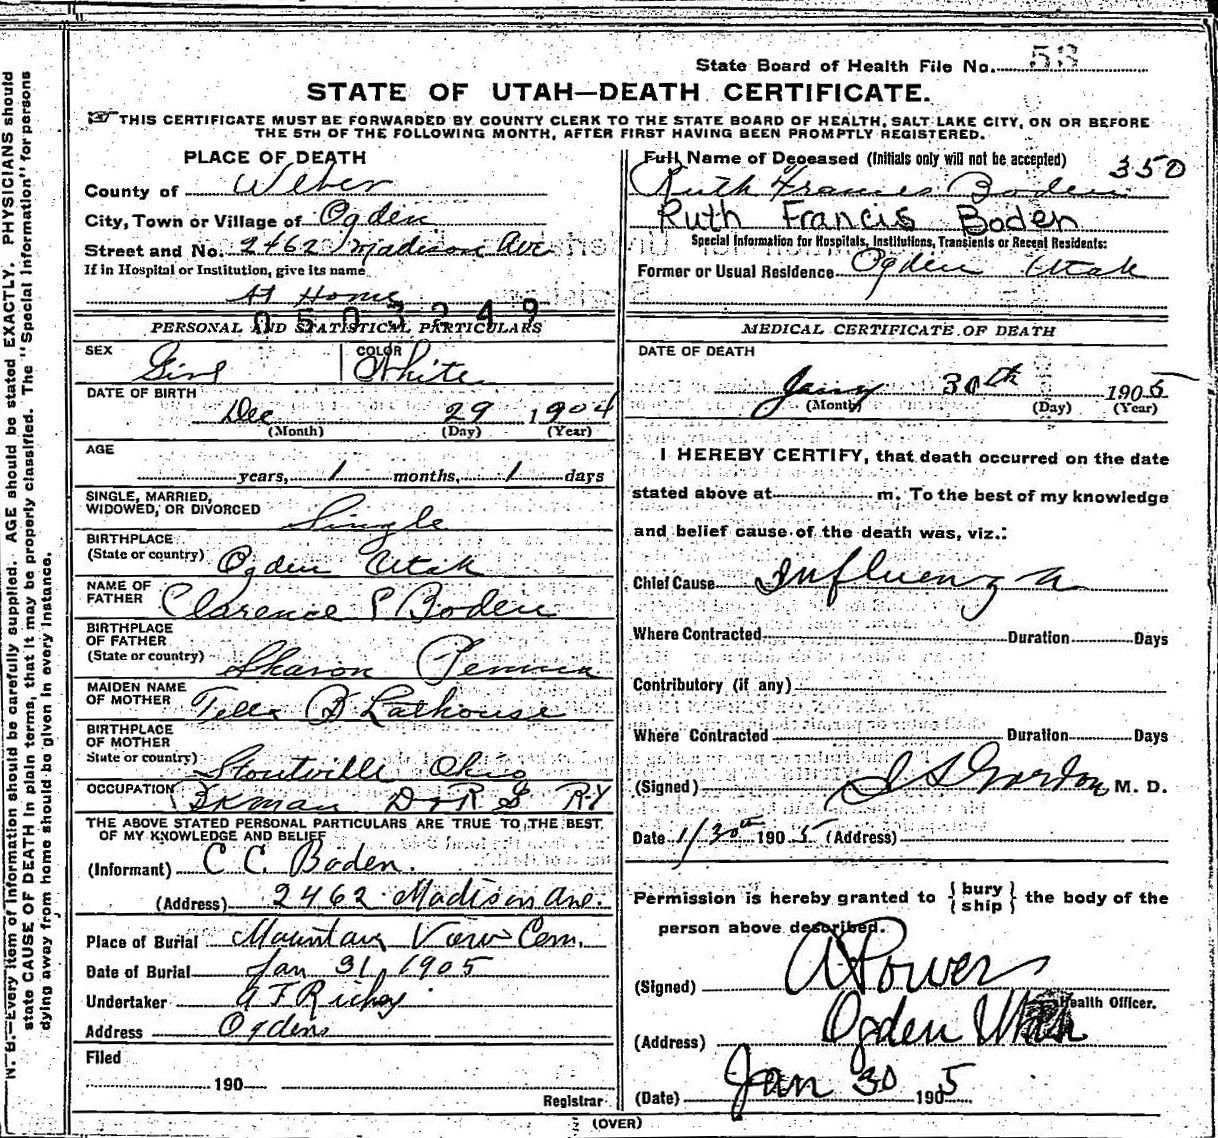 State Board of Health File No. 53
STATE OF UTAH—DEATH CERTIFICATE.
THIS CERTIFICATE MUST BE FORWARDED BY COUNTY CLERK TO THE STATE BOARD OF HEALTH, SALT LAKE CITY, ON OR BEFORE
THE 5TH OF THE FOLLOWING MONTH, AFTER FIRST HAVING BEEN PROMPTLY REGISTERED.
PLACE OF DEATH
County of Weber
City, Town or Village of Ogden
Street and No. 2462 Madison Ave
If in Hospital or Institution, give its name
At Home
0503249
PERSONAL AND STATISTICAL PARTICULARS
SEX Girl
COLOR White
DATE OF BIRTH
Dec 29 1904
(Month) (Day) (Year)
AGE
years, 1 months, 1 days
SINGLE, MARRIED,
WIDOWED, OR DIVORCED Single
BIRTHPLACE
(State or country) Ogden Utah
NAME OF
FATHER Clarence Boden
BIRTHPLACE
OF FATHER
(State or country) Sharon
MAIDEN NAME
OF MOTHER B Lathouse
BIRTHPLACE
OF MOTHER
State or country) Stoutville Ohio
OCCUPATION D & R G RY
THE ABOVE STATED PERSONAL PARTICULARS ARE TRUE TO THE BEST
OF MY KNOWLEDGE AND BELIEF
(Informant) C C. Boden.
(Address) 2462 Madison Ave.
Place of Burial Mountain View Cem.
Date of Burial Jan 31, 1905
Undertaker A T Richey
Address Ogden
Filed
190
Registrar
Full Name of Deceased (Initials only will not be accepted) 350
Ruth Frances Boden
Ruth Francis Boden
Special Information for Hospitals, Institutions, Transients or Recent Residents:
Former or Usual Residence Ogden Utah
MEDICAL CERTIFICATE OF DEATH
DATE OF DEATH
Jany 30th 1905
(Month) (Day) (Year)
I HEREBY CERTIFY, that death occurred on the date
stated above at m. To the best of my knowledge
and belief cause of the death was, viz.:
Chief Cause Influenza
Where Contracted Duration Days
Contributory (if any)
Where Contracted Duration Days
(Signed) Gordon M. D.
Date 1/30th 1905 (Address)
Permission is hereby granted to {bury
ship} the body of the
person above described.
(Signed) A Power
Health Officer.
(Address) Ogden Utah
(Date) Jan 30 1905
(OVER)
N. B.—Every item of information should be carefully supplied. AGE should be stated EXACTLY. PHYSICIANS should
state CAUSE OF DEATH in plain terms, that it may be properly classified. The "Special Information" for persons
dying away from home should be given in every instance.